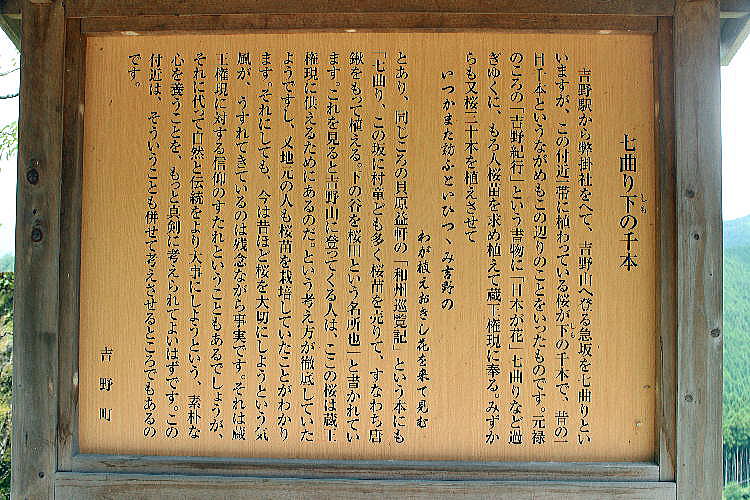 七曲り下の千本
しも
吉野駅から幣掛社をへて、吉野山へ登る急坂を七曲りとい
いますが、この付近一帯に植わっている桜が下の千本で、昔の一
しも
目千本というながめもこの辺りのことをいったものです。元禄
のころの「吉野紀行」という書物に「日本が花」七曲りなど過
ぎゆくに、もろ人桜苗を求め植えて蔵王権現に奉る。みずか
らも又桜二十本を植えさせて
いつかまた訪ふといひつゝみ吉野の
わが植えおきし花を来て見む
とあり、同じころの貝原益軒の「和州巡覧記」という本にも
「七曲り、この坂に村童ども多く桜苗を売りて、すなわち店
鍬をもって植える。下の谷を桜田という名所也」と書かれてい
ます。これを見ると吉野山に登ってくる人は、ここの桜は蔵王
権現に供えるためにあるのだ。という考え方が徹底していた
ようですし、又地元の人も桜苗を栽培していたことがわかり
ます。それにしても、今は昔ほど桜を大切にしようという気
風が、うすれてきているのは残念ながら事実です。それは蔵
王権現に対する信仰のすたれということもあるでしょうが、
それに代って自然と伝統をより大事にしようという、素朴な
心を養うことを、もっと真剣に考えられてよいはずです。この
付近は、そういうことも併せて考えさせるところでもあるの
です。
吉野町